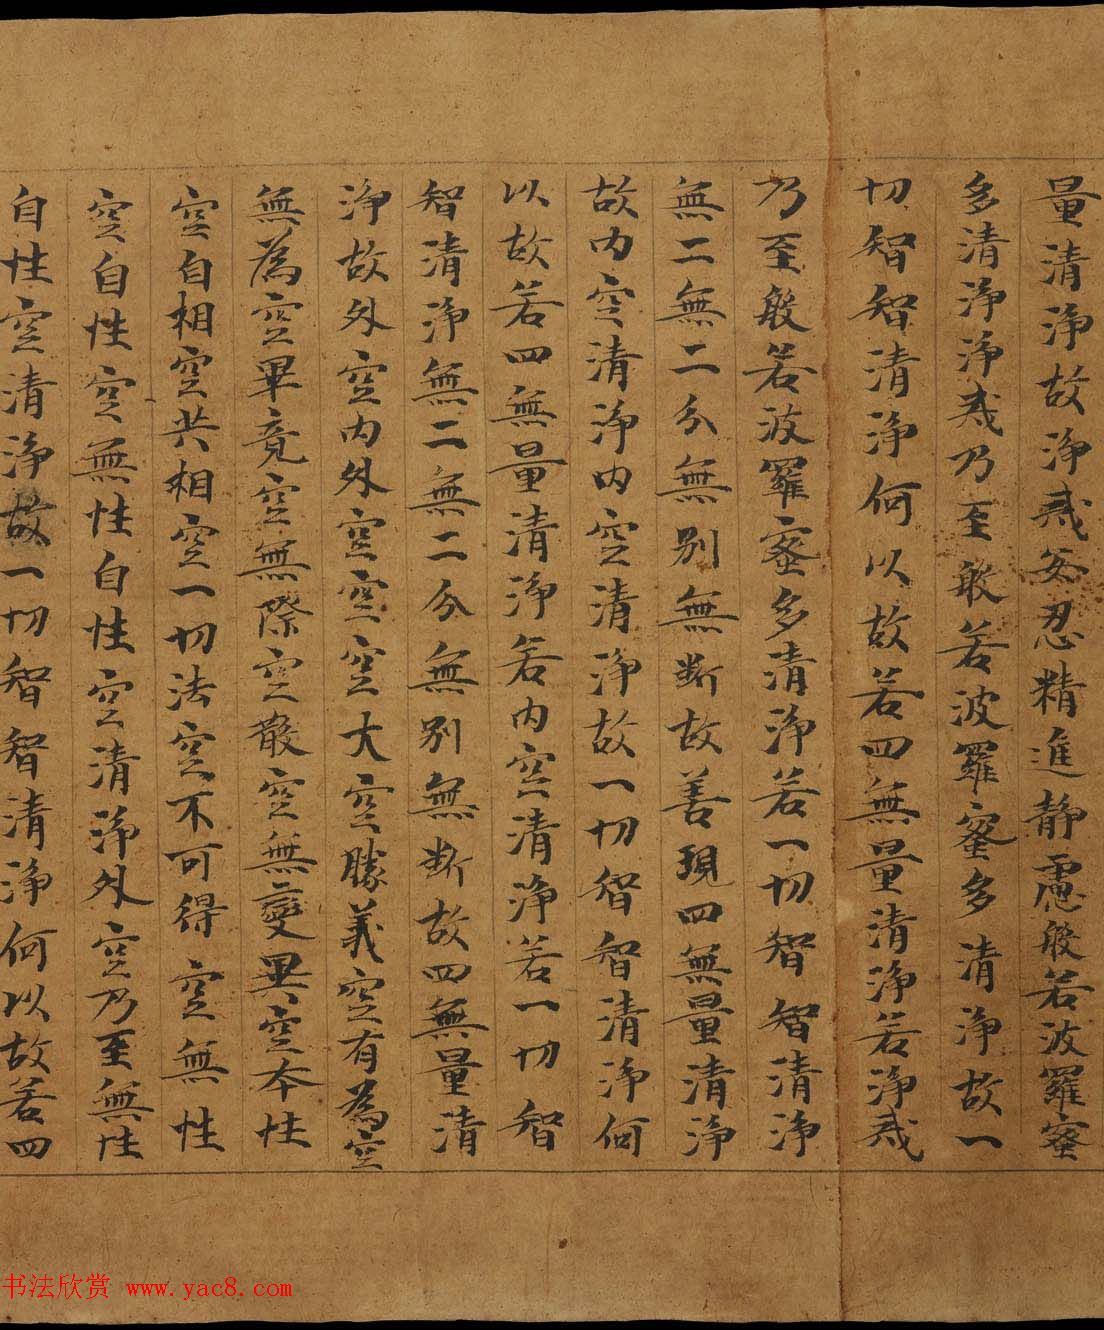 量清淨故淨戒安忍精進靜慮般若波羅蜜
多清淨淨戒乃至般若波羅蜜多清淨故一
切智智清淨何以故若四無量清淨若淨戒
乃至般若波羅蜜多清淨若一切智智清淨
無二無二分無別無斷故善現四無量清淨
故内空清淨内空清淨故一切智智清淨何
以故若四無量清淨若内空清淨若一切智
智清淨無二無二分無別無斷故四無量清
淨故外空内外空空空大空勝義空有為空
無為空畢竟空無際空散空無變異空本性
空自相空共相空一切法空不可得空無性
空自性空無性自性空清淨外空乃至無性
自性空清淨故一切智智清淨何以故若四
书法欣赏 www.yac8.com